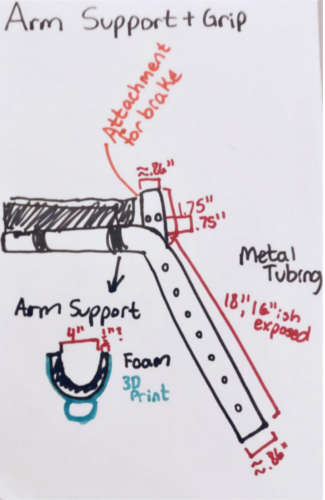 Arm Support + Grip
Attachment
for brake
≈.86"
1.75"
.75"
Metal
Tubing
18", 16"ish
exposed
Arm Support
4"
½"?
Foam
3D
Print
≈.86"